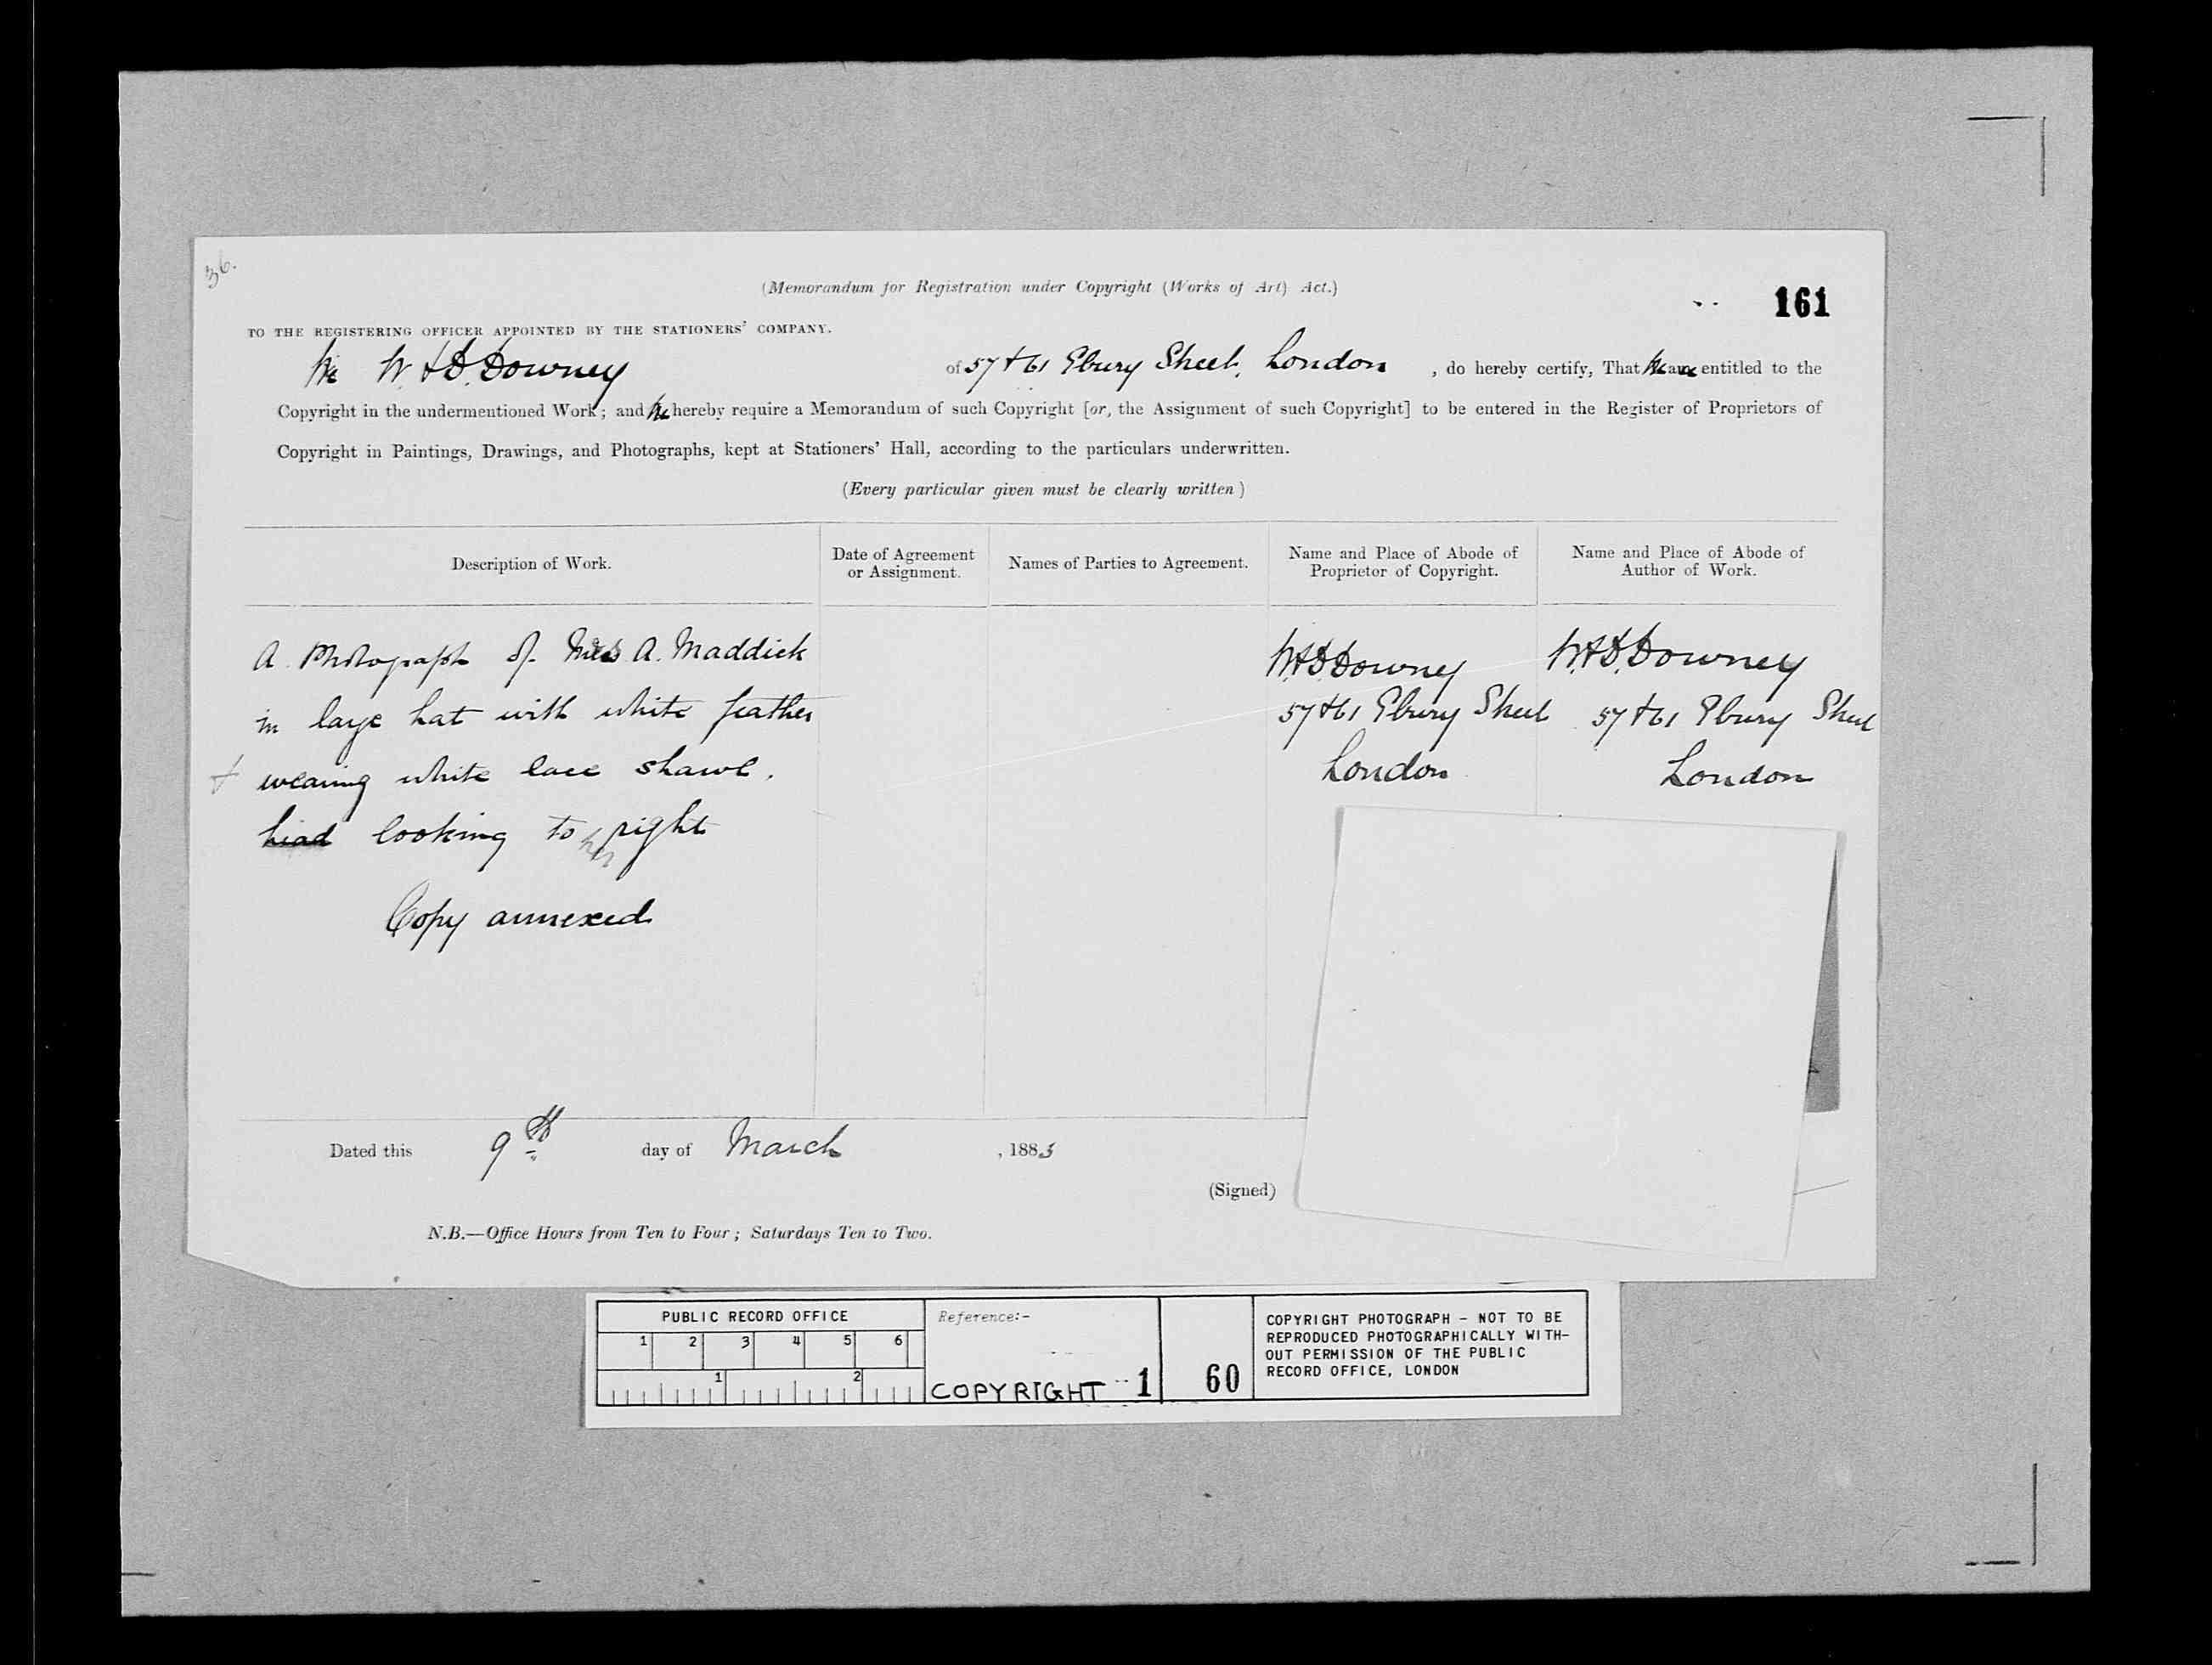 36.
(Memorandum for Registration under Copyright (Works of Art) Act.)
161
TO THE REGISTERING OFFICER APPOINTED BY THE STATIONERS' COMPANY.
We W. & D. Downey of 57 & 61 Ebury Street, London , do hereby certify, That We are entitled to the
Copyright in the undermentioned Work; and We hereby require a Memorandum of such Copyright [or, the Assignment of such Copyright] to be entered in the Register of Proprietors of
Copyright in Paintings, Drawings, and Photographs, kept at Stationers' Hall, according to the particulars underwritten.
(Every particular given must be clearly written)
Description of Work.
Date of Agreement
or Assignment.
Names of Parties to Agreement.
Name and Place of Abode of
Proprietor of Copyright.
Name and Place of Abode of
Author of Work.
A Photograph of A. Maddick
in large hat with white feather
& wearing white lace shawl.
head looking to her right
Copy annexed
W. & D. Downey
57 & 61 Ebury Street
London
W. & D. Downey
57 & 61 Ebury Street
London
Dated this 9th day of March , 1883
(Signed)
N.B.—Office Hours from Ten to Four; Saturdays Ten to Two.
PUBLIC RECORD OFFICE
1 2 3 4 5 6
1 2
Reference:-
COPYRIGHT 1 60
COPYRIGHT PHOTOGRAPH - NOT TO BE
REPRODUCED PHOTOGRAPHICALLY WITH-
OUT PERMISSION OF THE PUBLIC
RECORD OFFICE, LONDON